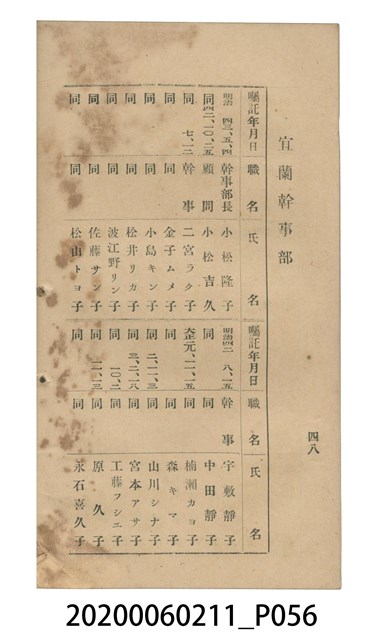 宜蘭幹事部
四八
囑託年月日 職名 氏名
明治 四三、五、四 幹事部長 小松隆子
同四二、一〇、二五 顧問 小松吉久
同 七、一二 幹事 二宮ラク子
同 同 金子ムメ子
同 同 小島キン子
同 同 松井リカ子
同 同 波江野リン子
同 同 佐藤サン子
同 同 松山トヨ子
囑託年月日 職名 氏名
明治四二 八、一五 幹事 宇敷靜子
同 同 中田靜子
大正元、一一、一五 同 楠瀨カヨ子
同 同 森キマ子
同二、一一、三 同 山川シナ子
同三、二、一八 同 宮本アサ子
同 一〇、二 同 工藤フシエ子
同 一二、一三 同 原久子
同 同 永石喜久子
20200060211_P056